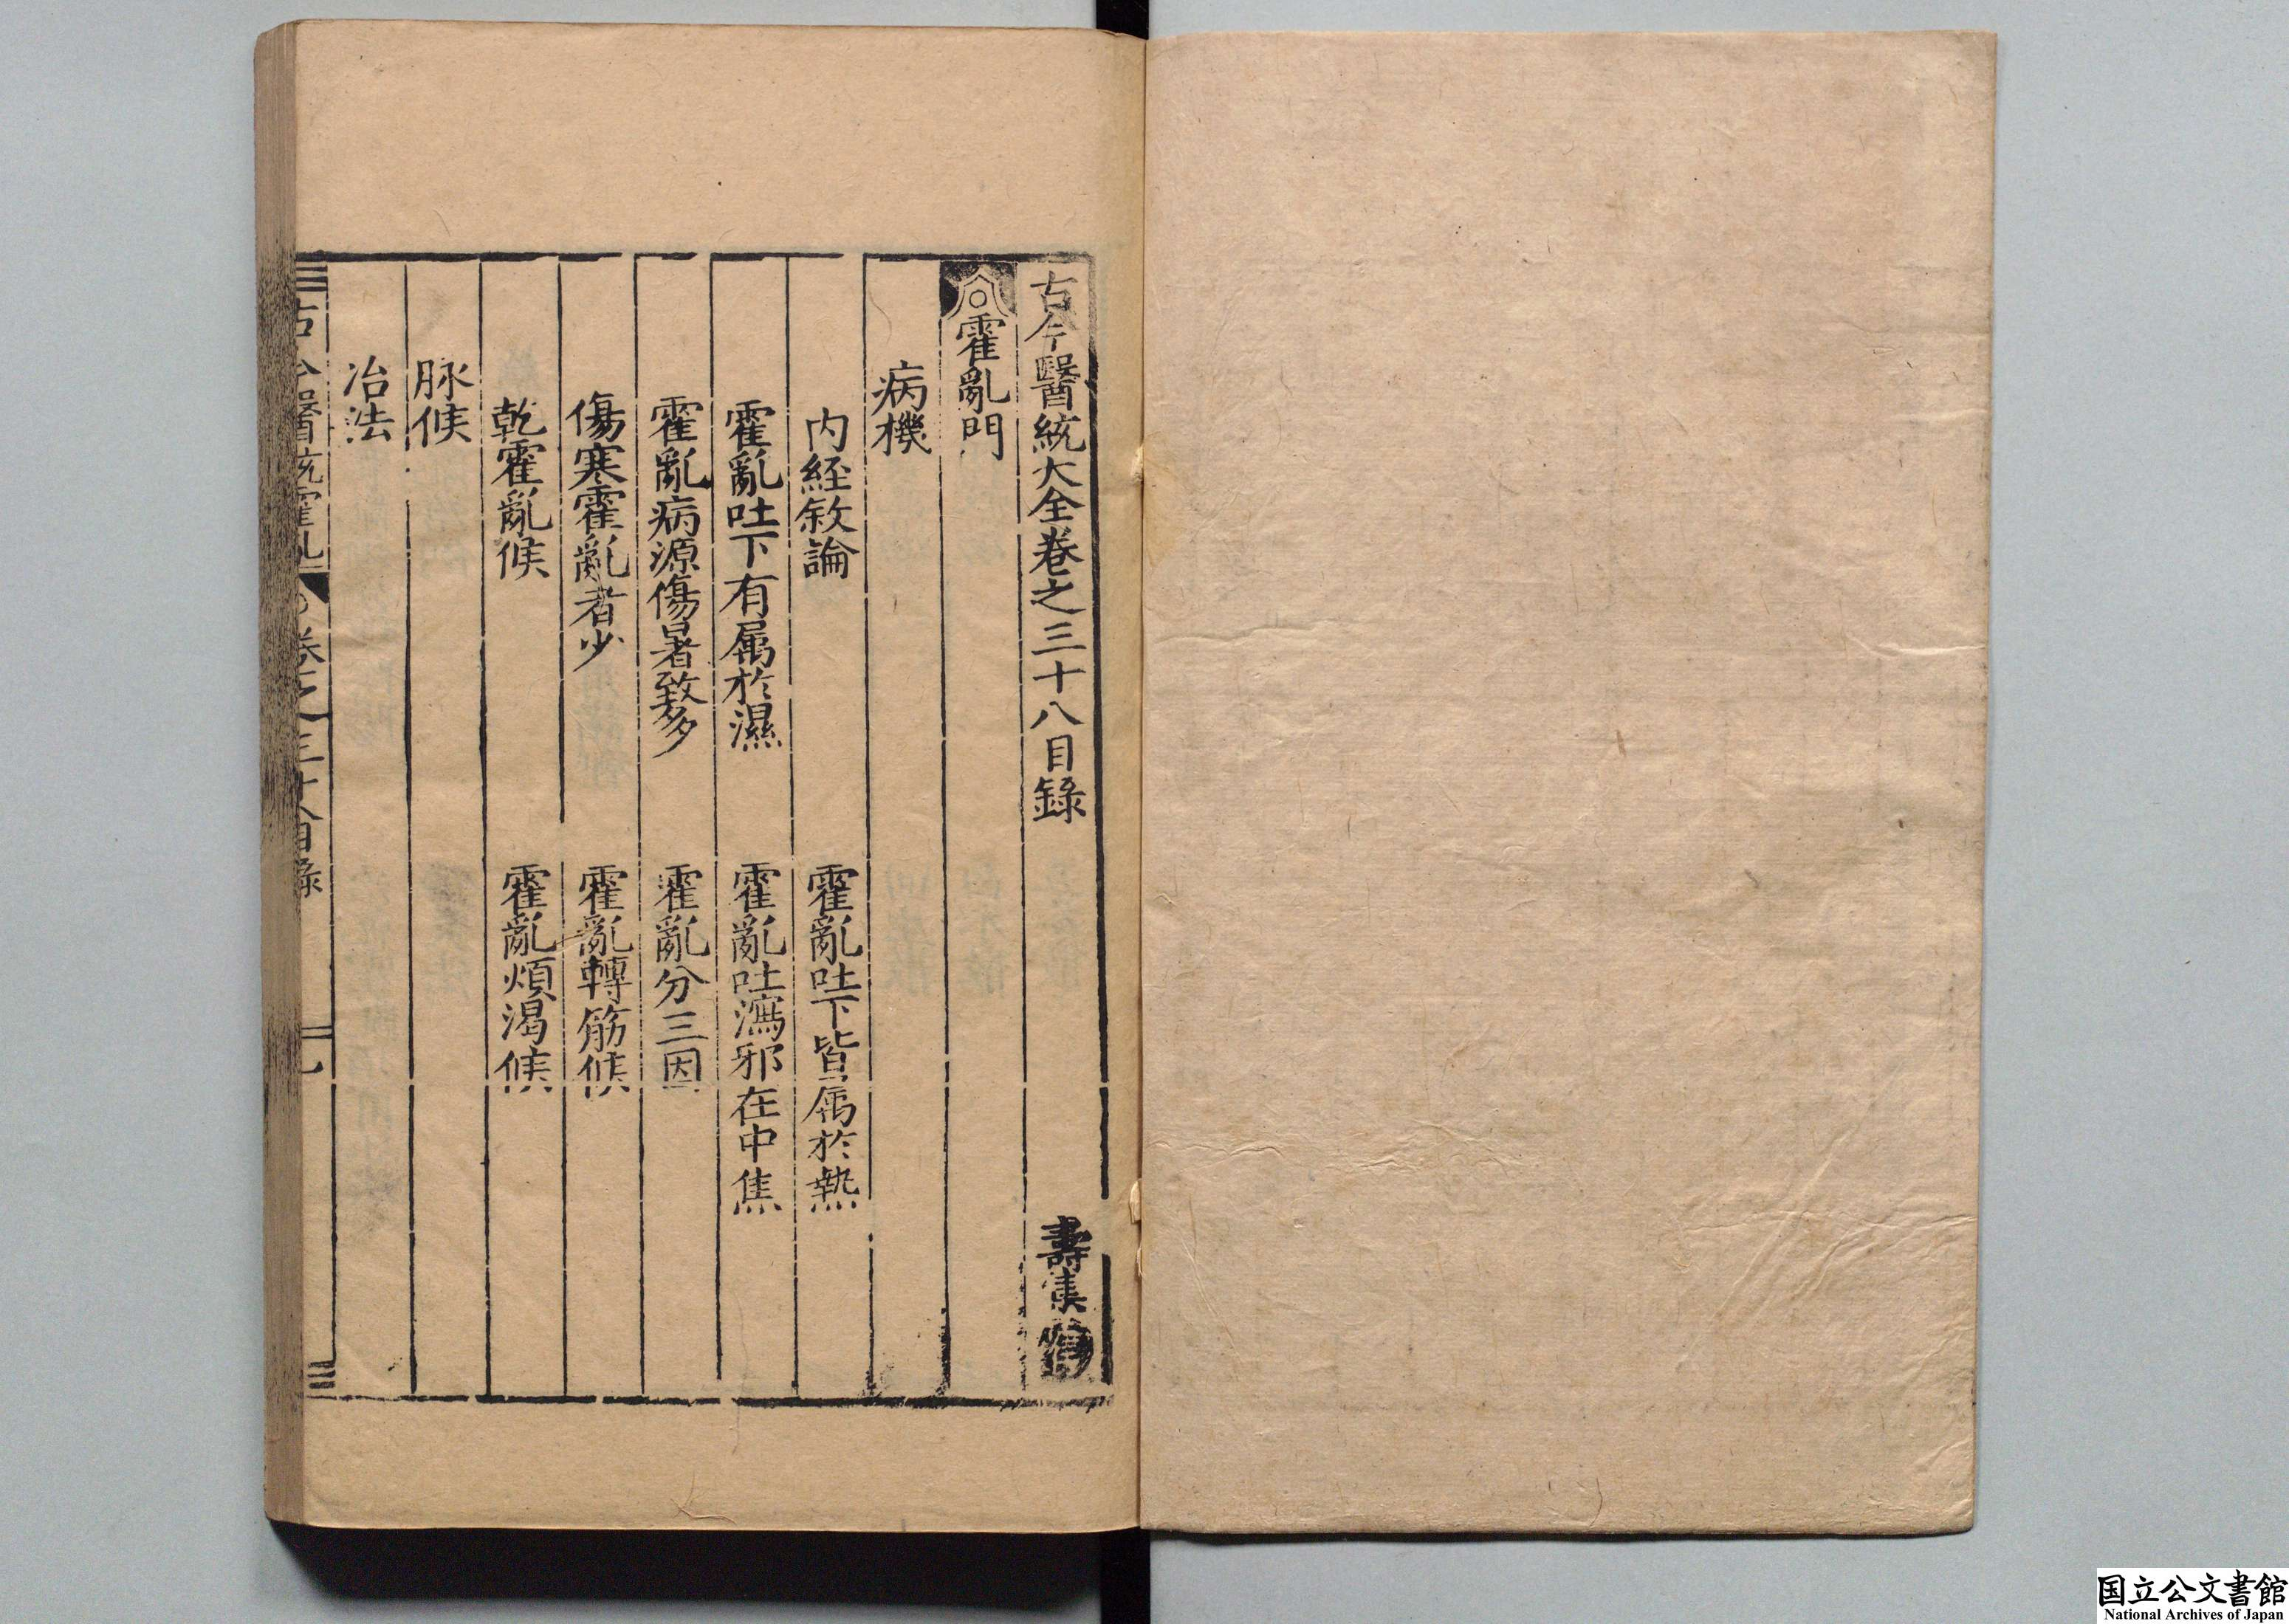 古今醫統大全卷之三十八目錄 壽集
霍亂門
病機
内経敘論 霍亂吐下皆属於熱
霍亂吐下有属於濕 霍亂吐瀉邪在中焦
霍亂病源傷暑致多 霍亂分三因
傷寒霍亂者少 霍亂轉筋候
乾霍亂候 霍亂煩渴候
脉候
治法
古今醫統霍亂 卷之三十八目錄 一
国立公文書館
National Archives of Japan